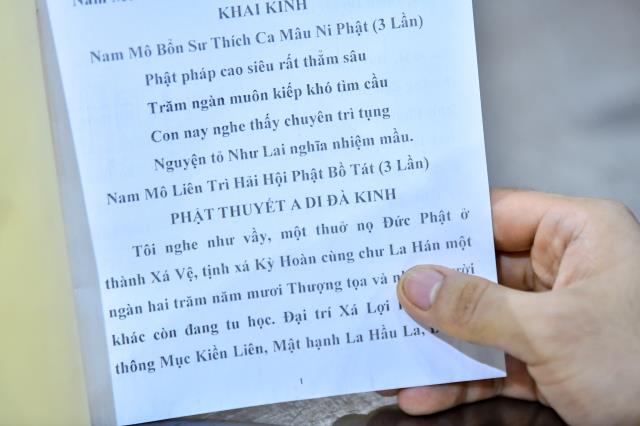 Nam Mô
KHAI KINH
Nam Mô Bổn Sư Thích Ca Mâu Ni Phật (3 Lần)
Phật pháp cao siêu rất thẳm sâu
Trăm ngàn muôn kiếp khó tìm cầu
Con nay nghe thấy chuyên trì tụng
Nguyện tỏ Như Lai nghĩa nhiệm mầu.
Nam Mô Liên Trì Hải Hội Phật Bồ Tát (3 Lần)
PHẬT THUYẾT A DI ĐÀ KINH
Tôi nghe như vầy, một thuở nọ Đức Phật ở
thành Xá Vệ, tịnh xá Kỳ Hoàn cùng chư La Hán một
ngàn hai trăm năm mươi Thượng tọa và
khác còn đang tu học. Đại trí Xá Lợi
thông Mục Kiền Liên, Mật hạnh La Hầu La,
1